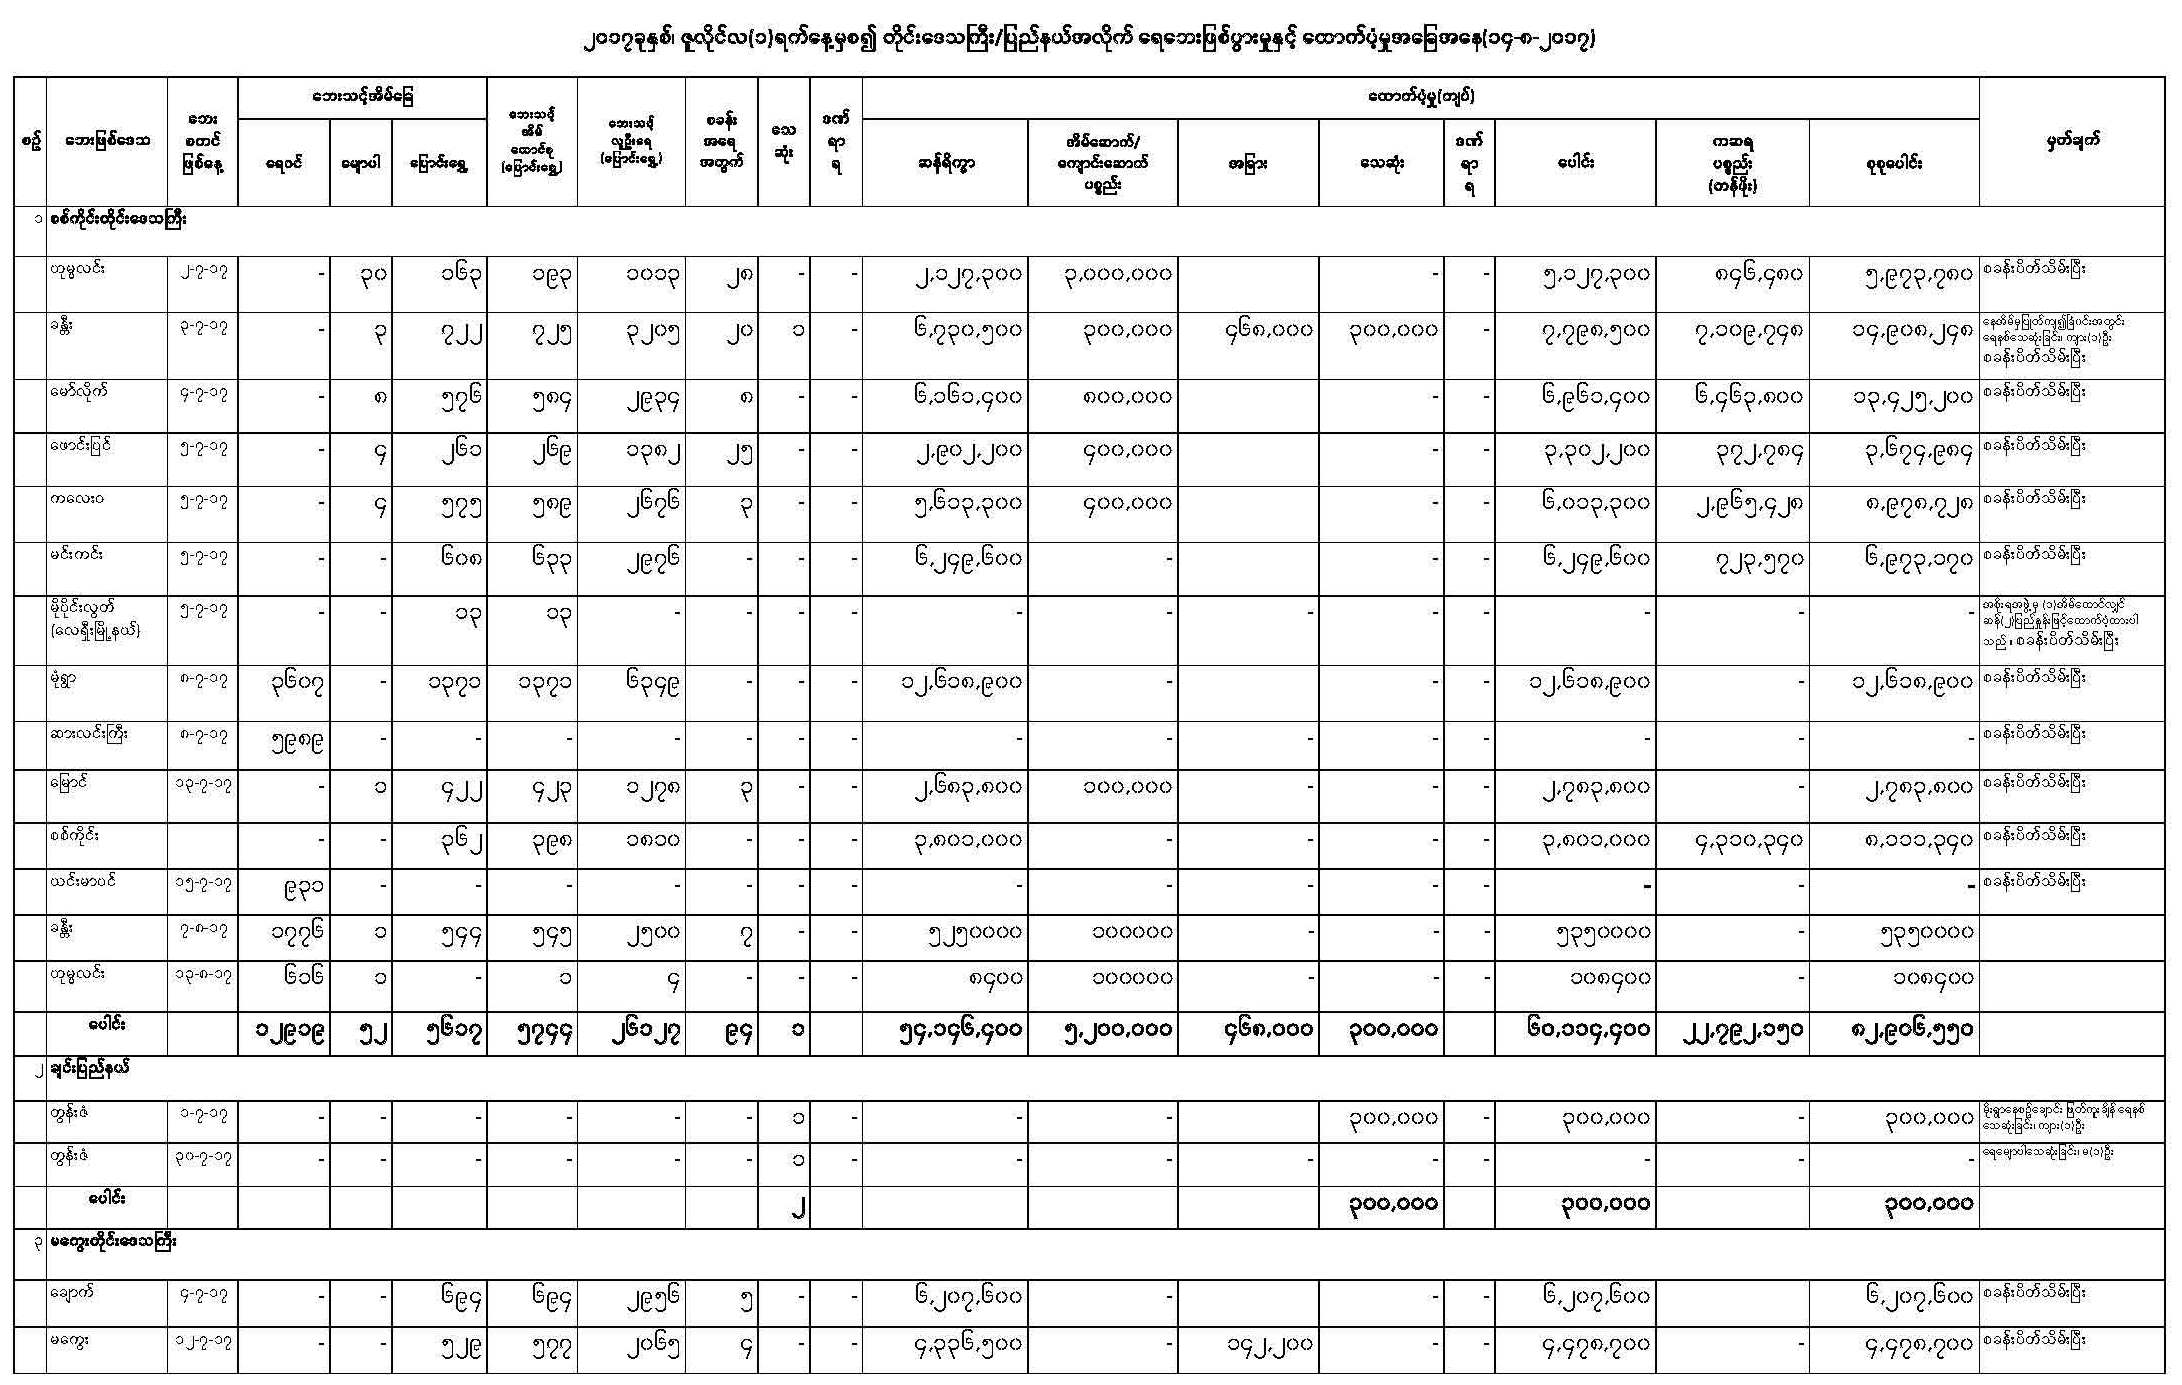 ၂၀၁၇ခုနှစ်၊ ဇူလိုင်လ(၁)ရက်နေ့မှစ၍ တိုင်းဒေသကြီး/ပြည်နယ်အလိုက် ရေဘေးဖြစ်ပွားမှုနှင့် ထောက်ပံ့မှုအခြေအနေ(၁၄-၈-၂၀၁၇)
စဉ် ဘေးဖြစ်ဒေသ ဘေး စတင် ဖြစ်နေ့ ဘေးသင့်အိမ်ခြေ ဘေးသင့် အိမ် ထောင်စု (ပြောင်းရွှေ့) ဘေးသင့် လူဦးရေ (ပြောင်းရွှေ့) စခန်း အရေ အတွက် သေ ဆုံး ဒဏ် ရာ ရ ထောက်ပံ့မှု(ကျပ်) မှတ်ချက်
ရေဝင် မျောပါ ပြောင်းရွှေ့ ဆန်ရိက္ခာ အိမ်ဆောက်/ ကျောင်းဆောက် ပစ္စည်း အခြား သေဆုံး ဒဏ် ရာ ရ ပေါင်း ကဆရ ပစ္စည်း (တန်ဖိုး) စုစုပေါင်း
၁ စစ်ကိုင်းတိုင်းဒေသကြီး
ဟုမ္မလင်း ၂-၇-၁၇ - ၃၀ ၁၆၃ ၁၉၃ ၁၀၁၃ ၂၈ - - ၂,၁၂၇,၃၀၀ ၃,၀၀၀,၀၀၀ - - ၅,၁၂၇,၃၀၀ ၈၄၆,၄၈၀ ၅,၉၇၃,၇၈၀ စခန်းပိတ်သိမ်းပြီး
ခန္တီး ၃-၇-၁၇ - ၃ ၇၂၂ ၇၂၅ ၃၂၀၅ ၂၀ ၁ - ၆,၇၃၀,၅၀၀ ၃၀၀,၀၀၀ ၄၆၈,၀၀၀ ၃၀၀,၀၀၀ - ၇,၇၉၈,၅၀၀ ၇,၁၀၉,၇၄၈ ၁၄,၉၀၈,၂၄၈ နေအိမ်မှပြုတ်ကျ၍ခြံဝင်းအတွင်း
ရေနစ်သေဆုံးခြင်း၊ ကျား(၁)ဦး
စခန်းပိတ်သိမ်းပြီး
မော်လိုက် ၄-၇-၁၇ - ၈ ၅၇၆ ၅၈၄ ၂၉၃၄ ၈ - - ၆,၁၆၁,၄၀၀ ၈၀၀,၀၀၀ - - ၆,၉၆၁,၄၀၀ ၆,၄၆၃,၈၀၀ ၁၃,၄၂၅,၂၀၀ စခန်းပိတ်သိမ်းပြီး
ဖောင်းပြင် ၅-၇-၁၇ - ၄ ၂၆၁ ၂၆၉ ၁၃၈၂ ၂၅ - - ၂,၉၀၂,၂၀၀ ၄၀၀,၀၀၀ - - ၃,၃၀၂,၂၀၀ ၃၇၂,၇၈၄ ၃,၆၇၄,၉၈၄ စခန်းပိတ်သိမ်းပြီး
ကလေးဝ ၅-၇-၁၇ - ၄ ၅၇၅ ၅၈၉ ၂၆၇၆ ၃ - - ၅,၆၁၃,၃၀၀ ၄၀၀,၀၀၀ - - ၆,၀၁၃,၃၀၀ ၂,၉၆၅,၄၂၈ ၈,၉၇၈,၇၂၈ စခန်းပိတ်သိမ်းပြီး
မင်းကင်း ၅-၇-၁၇ - - ၆၀၈ ၆၃၃ ၂၉၇၆ - - - ၆,၂၄၉,၆၀၀ - - - ၆,၂၄၉,၆၀၀ ၇၂၃,၅၇၀ ၆,၉၇၃,၁၇၀ စခန်းပိတ်သိမ်းပြီး
မိုပိုင်းလွတ် (လေရှီးမြို့နယ်) ၅-၇-၁၇ - - ၁၃ ၁၃ - - - - - - - - - - - - အစိုးရအဖွဲ့မှ (၁)အိမ်ထောင်လျှင်
ဆန်(၂)ပြည်နှုန်းဖြင့်ထောက်ပံ့ထားပါ
သည်။ စခန်းပိတ်သိမ်းပြီး
မုံရွာ ၈-၇-၁၇ ၃၆၀၇ - ၁၃၇၁ ၁၃၇၁ ၆၃၄၉ - - - ၁၂,၆၁၈,၉၀၀ - - - - ၁၂,၆၁၈,၉၀၀ - ၁၂,၆၁၈,၉၀၀ စခန်းပိတ်သိမ်းပြီး
ဆားလင်းကြီး ၈-၇-၁၇ ၅၉၈၉ - - - - - - - - - - - - - - - စခန်းပိတ်သိမ်းပြီး
မြောင် ၁၃-၇-၁၇ - ၁ ၄၂၂ ၄၂၃ ၁၂၇၈ ၃ - - ၂,၆၈၃,၈၀၀ ၁၀၀,၀၀၀ - - - ၂,၇၈၃,၈၀၀ - ၂,၇၈၃,၈၀၀ စခန်းပိတ်သိမ်းပြီး
စစ်ကိုင်း - - ၃၆၂ ၃၉၈ ၁၈၁၀ - - - ၃,၈၀၁,၀၀၀ - - - - ၃,၈၀၁,၀၀၀ ၄,၃၁၀,၃၄၀ ၈,၁၁၁,၃၄၀ စခန်းပိတ်သိမ်းပြီး
ယင်းမာပင် ၁၅-၇-၁၇ ၉၃၁ - - - - - - - - - - - - - - - စခန်းပိတ်သိမ်းပြီး
ခန္တီး ၇-၈-၁၇ ၁၇၇၆ ၁ ၅၄၄ ၅၄၅ ၂၅၀၀ ၇ - - ၅၂၅၀၀၀၀ ၁၀၀၀၀၀ - - - ၅၃၅၀၀၀၀ - ၅၃၅၀၀၀၀
ဟုမ္မလင်း ၁၃-၈-၁၇ ၆၁၆ ၁ - ၁ ၄ - - - ၈၄၀၀ ၁၀၀၀၀၀ - - - ၁၀၈၄၀၀ - ၁၀၈၄၀၀
ပေါင်း ၁၂၉၁၉ ၅၂ ၅၆၁၇ ၅၇၄၄ ၂၆၁၂၇ ၉၄ ၁ ၅၄,၁၄၆,၄၀၀ ၅,၂၀၀,၀၀၀ ၄၆၈,၀၀၀ ၃၀၀,၀၀၀ ၆၀,၁၁၄,၄၀၀ ၂၂,၇၉၂,၁၅၀ ၈၂,၉၀၆,၅၅၀
၂ ချင်းပြည်နယ်
တွန်းဇံ ၁-၇-၁၇ - - - - - - ၁ - - - ၃၀၀,၀၀၀ - ၃၀၀,၀၀၀ - ၃၀၀,၀၀၀ မိုးရွာနေစဉ်ချောင်း ဖြတ်ကူးချိန် ရေနစ်
သေဆုံးခြင်း၊ ကျား(၁)ဦး
တွန်းဇံ ၃၀-၇-၁၇ - - - - - - ၁ - - - - - - - - - ရေမျောပါသေဆုံးခြင်း၊ မ(၁)ဦး
ပေါင်း ၂ ၃၀၀,၀၀၀ ၃၀၀,၀၀၀ ၃၀၀,၀၀၀
၃ မကွေးတိုင်းဒေသကြီး
ချောက် ၄-၇-၁၇ - - ၆၉၄ ၆၉၄ ၂၉၅၆ ၅ - - ၆,၂၀၇,၆၀၀ - - - ၆,၂၀၇,၆၀၀ ၆,၂၀၇,၆၀၀ စခန်းပိတ်သိမ်းပြီး
မကွေး ၁၂-၇-၁၇ - - ၅၂၉ ၅၇၇ ၂၀၆၅ ၄ - - ၄,၃၃၆,၅၀၀ - ၁၄၂,၂၀၀ - - ၄,၄၇၈,၇၀၀ - ၄,၄၇၈,၇၀၀ စခန်းပိတ်သိမ်းပြီး